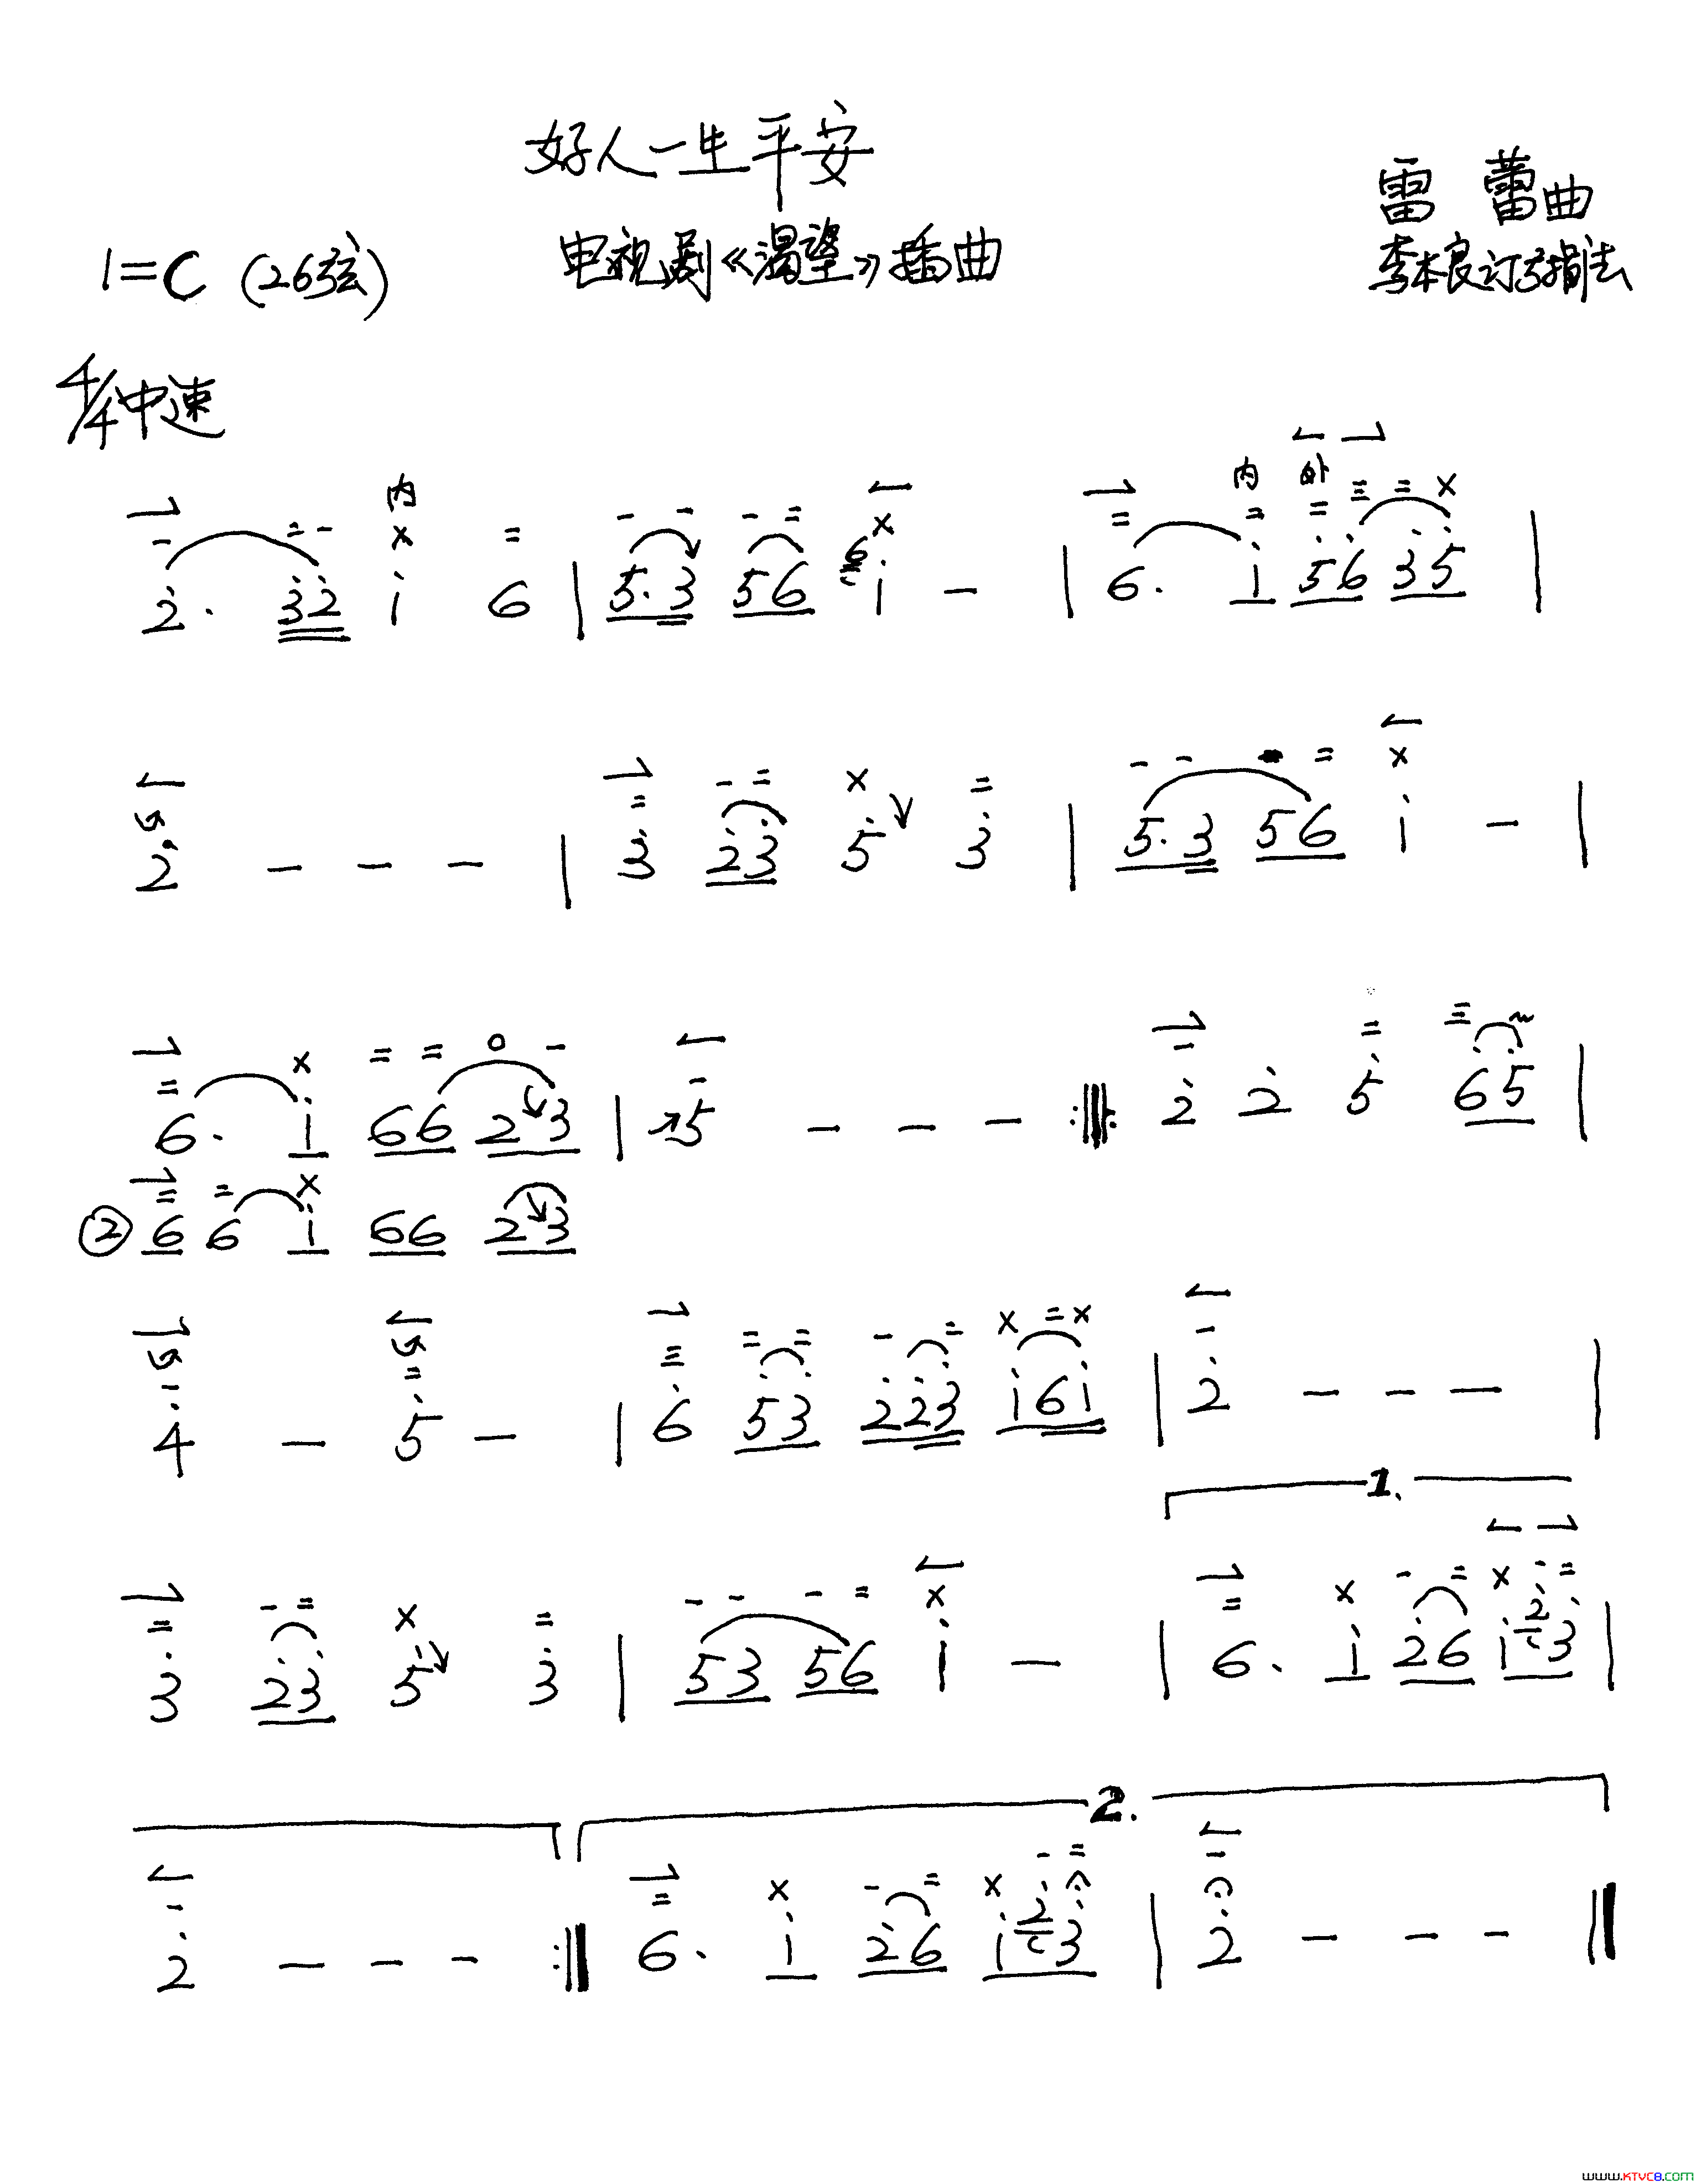 好人一生平安
雷 蕾曲
1=C (26弦)
电视剧《渴望》插曲
李本良订弓指法
4/4中速
内 内 外
2̇· 3̇2̇ 1̇ 6 | 5·3 56 6 1̇ - | 6· 1̇ 5̇6̇ 3̇5̇ |
2̇ - - - | 3̇ 2̇3̇ 5̇ 3̇ | 5·3 56 1̇ - |
6· 1̇ 66 23 | 5 - - - :‖: 2̇ 2̇ 5̇ 6̇5̇ |
② 6 6 1̇ 66 23
4̇ - 5̇ - | 6̇ 5̇3̇ 2̇2̇3̇ 1̇61̇ | 2̇ - - - |
1.
3̇ 2̇3̇ 5̇ 3̇ | 53 56 1̇ - | 6· 1̇ 2̇6 1̇ 2̇ 3̇ |
2.
2̇ - - - :‖ 6· 1̇ 2̇6 1̇ 2̇ 3̇ | 2̇ - - - ‖
www.KTVC8.com